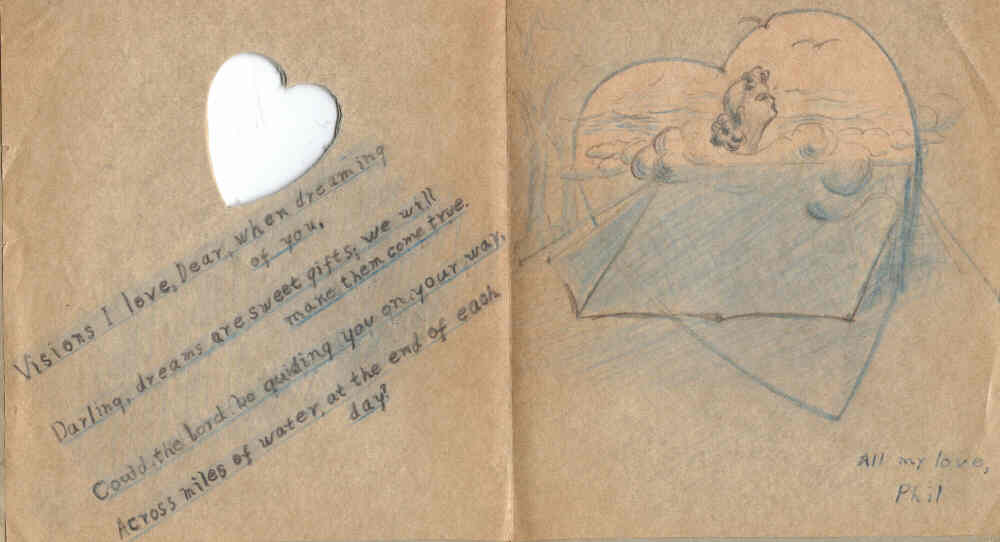 Visions I love, Dear, when dreaming
of you.
Darling, dreams are sweet gifts; we will
make them come true.
Could the Lord be guiding you on your way,
Across miles of water, at the end of each
day?
All my love,
Phil